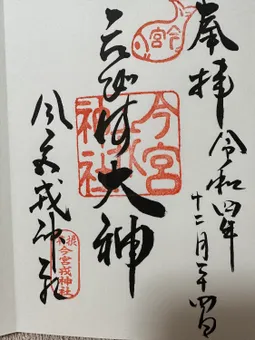 奉拝
令和四年
十二月二十四日
今宮
大神
今宮
戎
神社
今宮戎神社
今宮戎神社